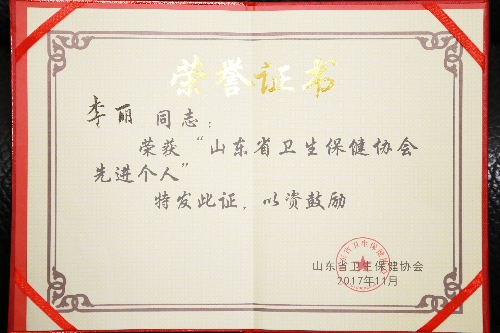 荣誉证书
李丽 同志：
荣获“山东省卫生保健协会
先进个人”
特发此证，以资鼓励
山东省卫生保健协会
2017年11月